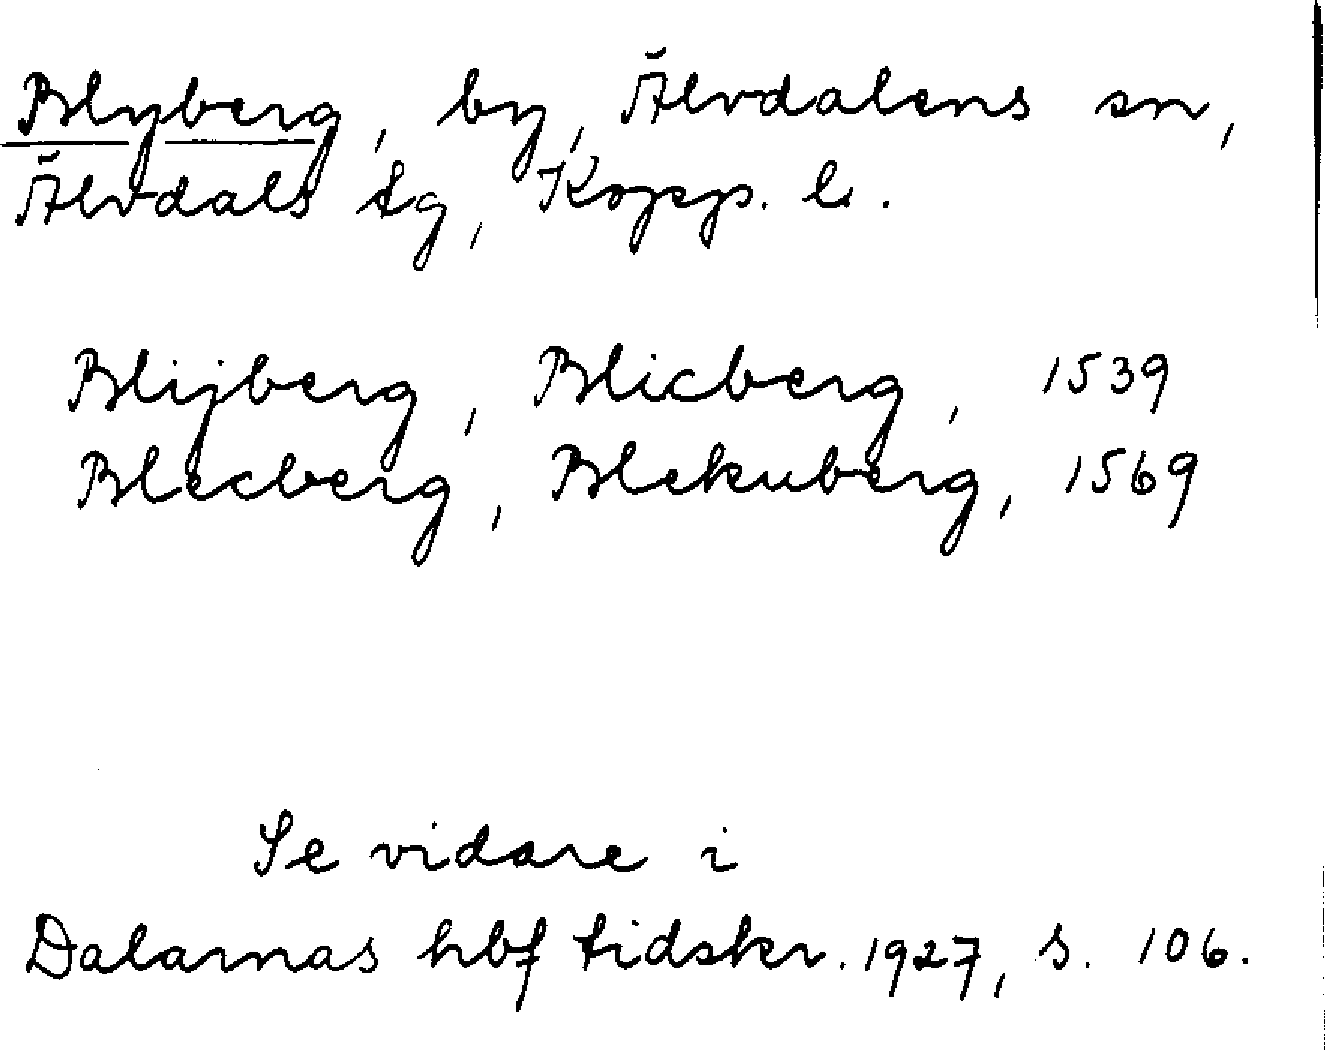 Blyberg, by, Älvdalens sn,
Älvdals tg, Kopp. l.
Blijberg, Blicberg, 1539
Blecberg, Blekuberg, 1569
Se vidare i
Dalarnas hbf tidskr. 1927, s. 106.